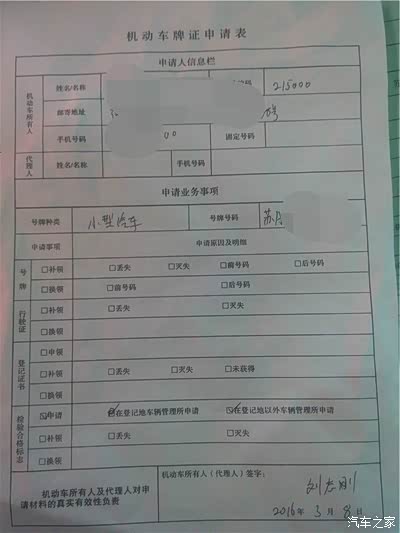 机动车牌证申请表
申请人信息栏
机动车所有人
姓名/名称
215000
邮寄地址
手机号码
00
固定号码
代理人
姓名/名称
手机号码
申请业务事项
号牌种类
小型汽车
号牌号码
苏
申请事项
申请原因及明细
号牌
□补领 □丢失 □灭失 □前号码 □后号码
□换领 □前号码 □后号码
行驶证
□补领 □丢失 □灭失
□换领
登记证书
□申领
□补领 □丢失 □灭失 □未获得
□换领
检验合格标志
☑申请 ☑在登记地车辆管理所申请 ☑在登记地以外车辆管理所申请
□补领 □丢失 □灭失
□换领
机动车所有人及代理人对申
请材料的真实有效性负责
机动车所有人（代理人）签字：
刘志刚
2016年3月8日
汽车之家